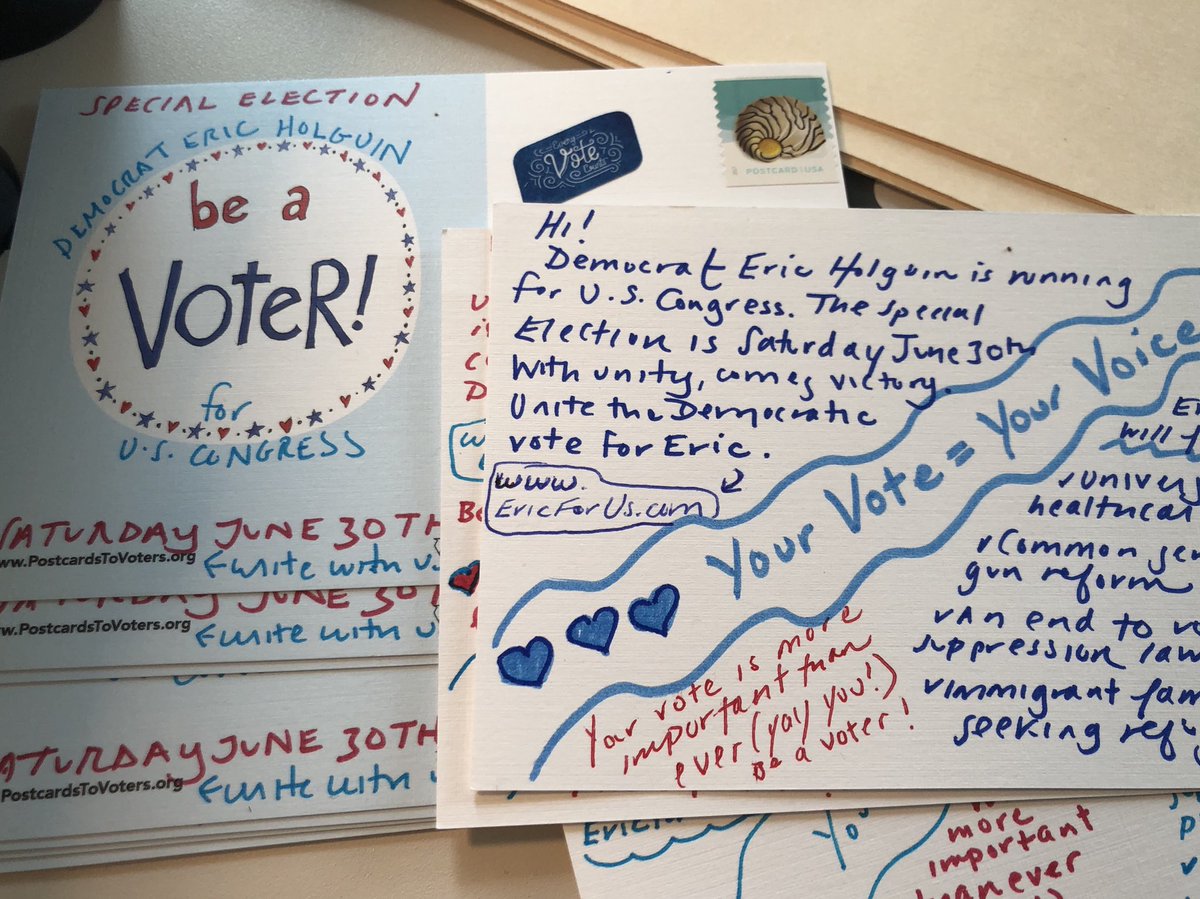 SPECIAL ELECTION
DEMOCRAT ERIC HOLGUIN
be a
VoteR!
for
U.S. CONGRESS
SATURDAY JUNE 30TH
www.PostcardsToVoters.org
write with
Every
Vote
Counts
POSTCARD USA
Hi!
Democrat Eric Holguin is running
for U.S. Congress. The special
Election is Saturday June 30th
With unity, comes victory.
Unite the Democratic
vote for Eric.
www.
EricForUs.com
Your Vote = Your Voice
Your vote is more
important than
ever (yay you!)
Be a voter!
will
healthcar
Common
gun reform
An end to
suppression law
Immigrant fam
seeking
SATURDAY JUNE 30TH
www.PostcardsToVoters.org
write with
SATURDAY JUNE 30TH
PostcardsToVoters.org
write with
more
important
ever